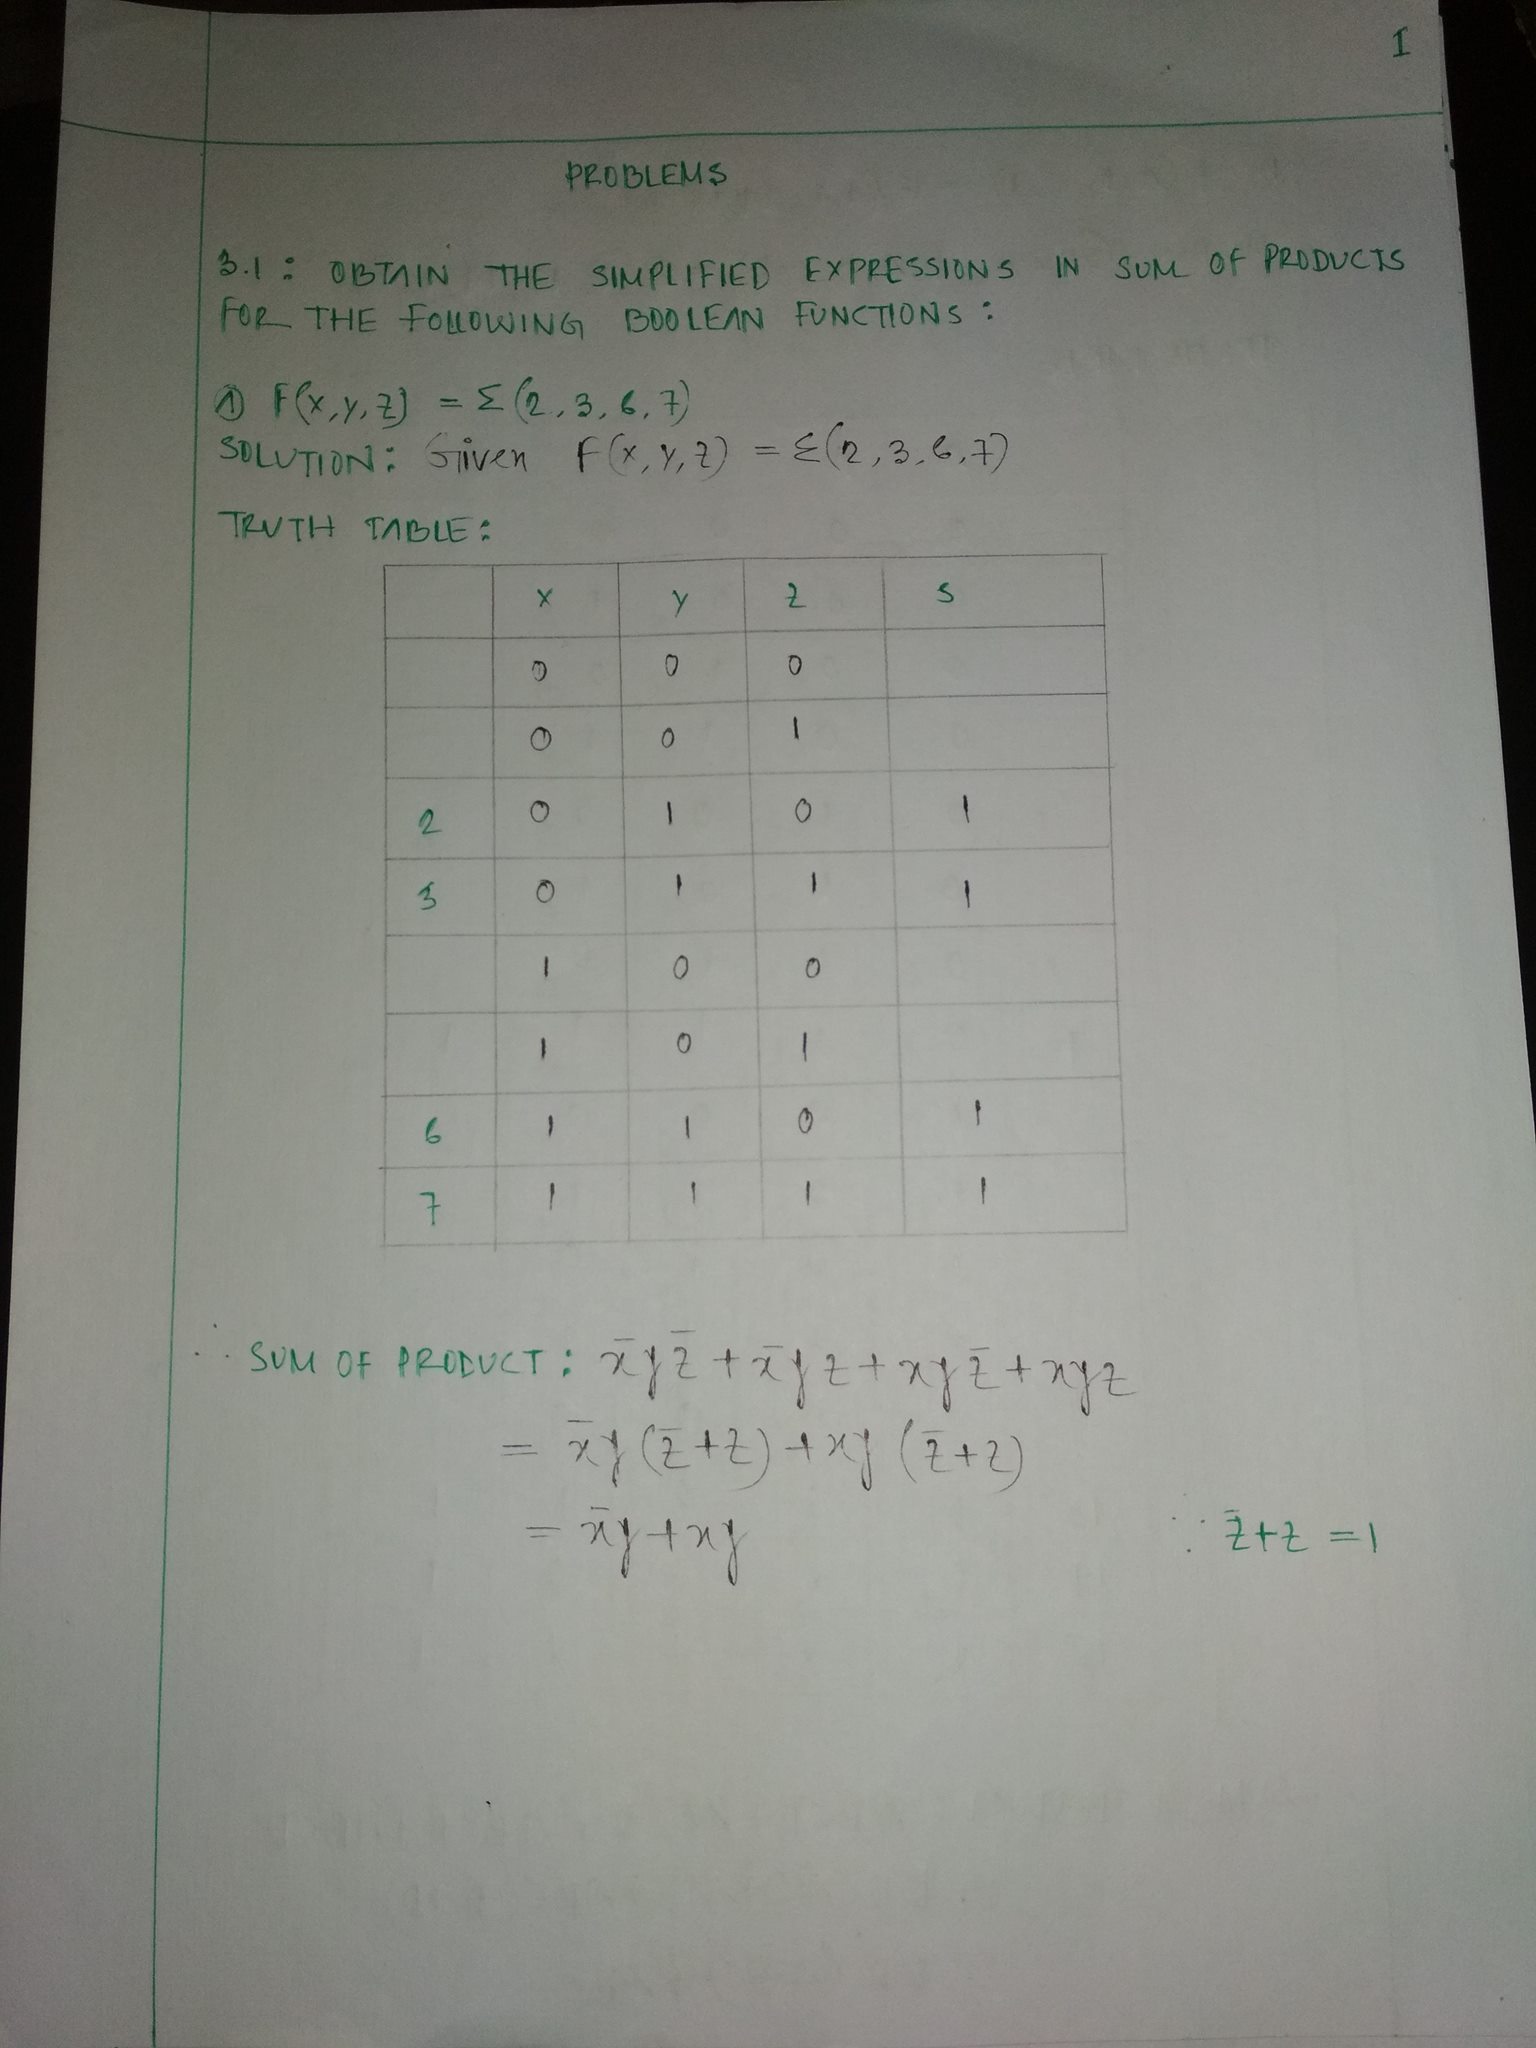 I
PROBLEMS
3.1: OBTAIN THE SIMPLIFIED EXPRESSIONS IN SUM OF PRODUCTS
FOR THE FOLLOWING BOOLEAN FUNCTIONS:
① F(x,y,z) = Σ(2,3,6,7)
SOLUTION: Given F(x,y,z) = Σ(2,3,6,7)
TRUTH TABLE:
x y z s
0 0 0
0 0 1
2 0 1 0 1
3 0 1 1 1
1 0 0
1 0 1
6 1 1 0 1
7 1 1 1 1
∴ SUM OF PRODUCT: x̄yz̄ + x̄yz + xyz̄ + xyz
= x̄y(z̄+z) + xy(z̄+z)
= x̄y + xy ∵ z̄+z = 1